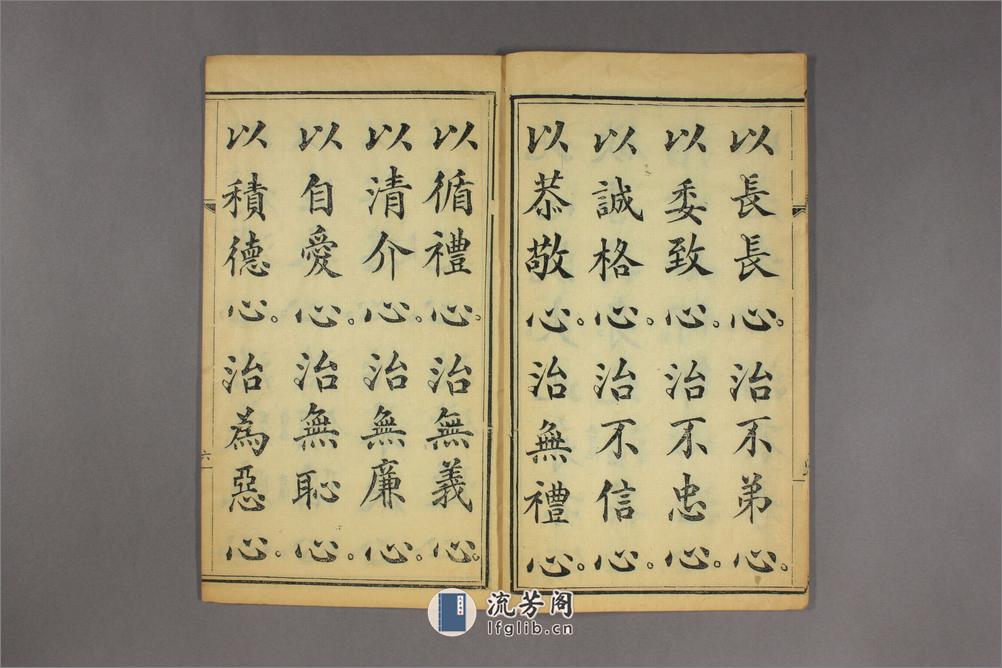 以長長心。治不弟心。
以委致心。治不忠心。
以誠格心。治不信心。
以恭敬心。治無禮心。
以循禮心。治無義心。
以清介心。治無廉心。
以自愛心。治無恥心。
以積德心。治為惡心。
六
流芳阁
lfglib.cn